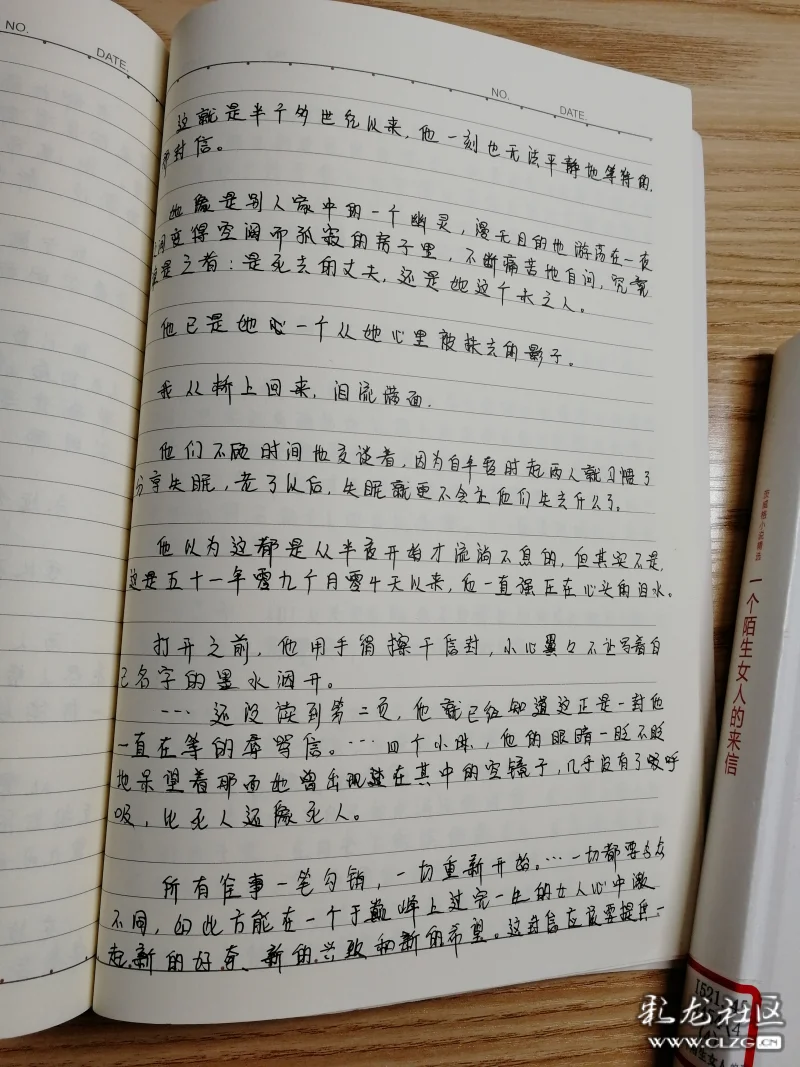 NO.
DATE.
NO.
DATE.
这就是半个多世纪以来，他一刻也无法平静地等待的
那封信。
她像是别人家中的一个幽灵，漫无目的地游荡在一夜
之间变得空阔而孤寂的房子里，不断痛苦地自问，究竟
谁是亡者：是死去的丈夫，还是她这个未亡人。
他已是她心一个从她心里被抹去的影子。
我从桥上回来，泪流满面.
他们不顾时间地交谈着，因为自年轻时起两人就习惯了
分享失眠，老了以后，失眠就更不会让他们失去什么了。
他以为这都是从半夜开始才流淌不息的，但其实不是，
这是五十一年零九个月零4天以来，他一直强压在心头的泪水。
打开之前，他用手绢擦干信封，小心翼々不让写着自
己名字的墨水洇开。
…还没读到第二页，他就已经知道这正是一封他
一直在等的辱骂信。…四个小时，他的眼睛一眨不眨
地呆望着那面她曾出现在其中的空镜子，几乎没有了呼
吸，比死人还像死人。
所有往事一笔勾销，一切重新开始。…一切都要与众
不同，如此方能在一个于巅峰上过完一生的女人心中激
起新的好奇、新的兴致和新的希望。这封信应该要提供一
茨威格小说精选
一个陌生女人的来信
I521
彩龙社区
WWW.CLZG.CN